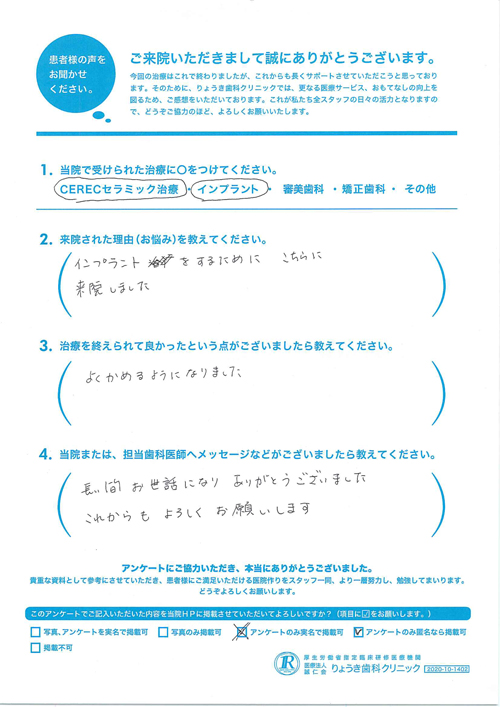 患者様の声を
お聞かせ
ください。
ご来院いただきまして誠にありがとうございます。
今回の治療はこれで終わりましたが、これからも長くサポートさせていただこうと思っており
ます。そのために、りょうき歯科クリニックでは、更なる医療サービス、おもてなしの向上を
図るため、ご感想をいただいております。これが私たち全スタッフの日々の活力となりますの
で、どうぞご協力のほど、よろしくお願いいたします。
1. 当院で受けられた治療に〇をつけてください。
CERECセラミック治療・インプラント・ 審美歯科 ・矯正歯科・ その他
2. 来院された理由(お悩み)を教えてください。
インプラント をするために こちらに
来院しました
3. 治療を終えられて良かったという点がございましたら教えてください。
よくかめるようになりました
4. 当院または、担当歯科医師へメッセージなどがございましたら教えてください。
長い間 お世話になり ありがとうございました
これからも よろしく お願いします
アンケートにご協力いただき、本当にありがとうございました。
貴重な資料として参考にさせていただき、患者様にご満足いただける医院作りをスタッフ一同、より一層努力し、勉強してまいります。
どうぞよろしくお願いします。
このアンケートでご記入いただいた内容を当院HPに掲載させていただいてよろしいですか?(項目に☑をお願いします。)
□写真、アンケートを実名で掲載可 □写真のみ掲載可 ☒アンケートのみ実名で掲載可 ☑アンケートのみ匿名なら掲載可
□掲載不可
厚生労働省指定臨床研修医療機関
医療法人
誠仁会
りょうき歯科クリニック
2020-10-1402